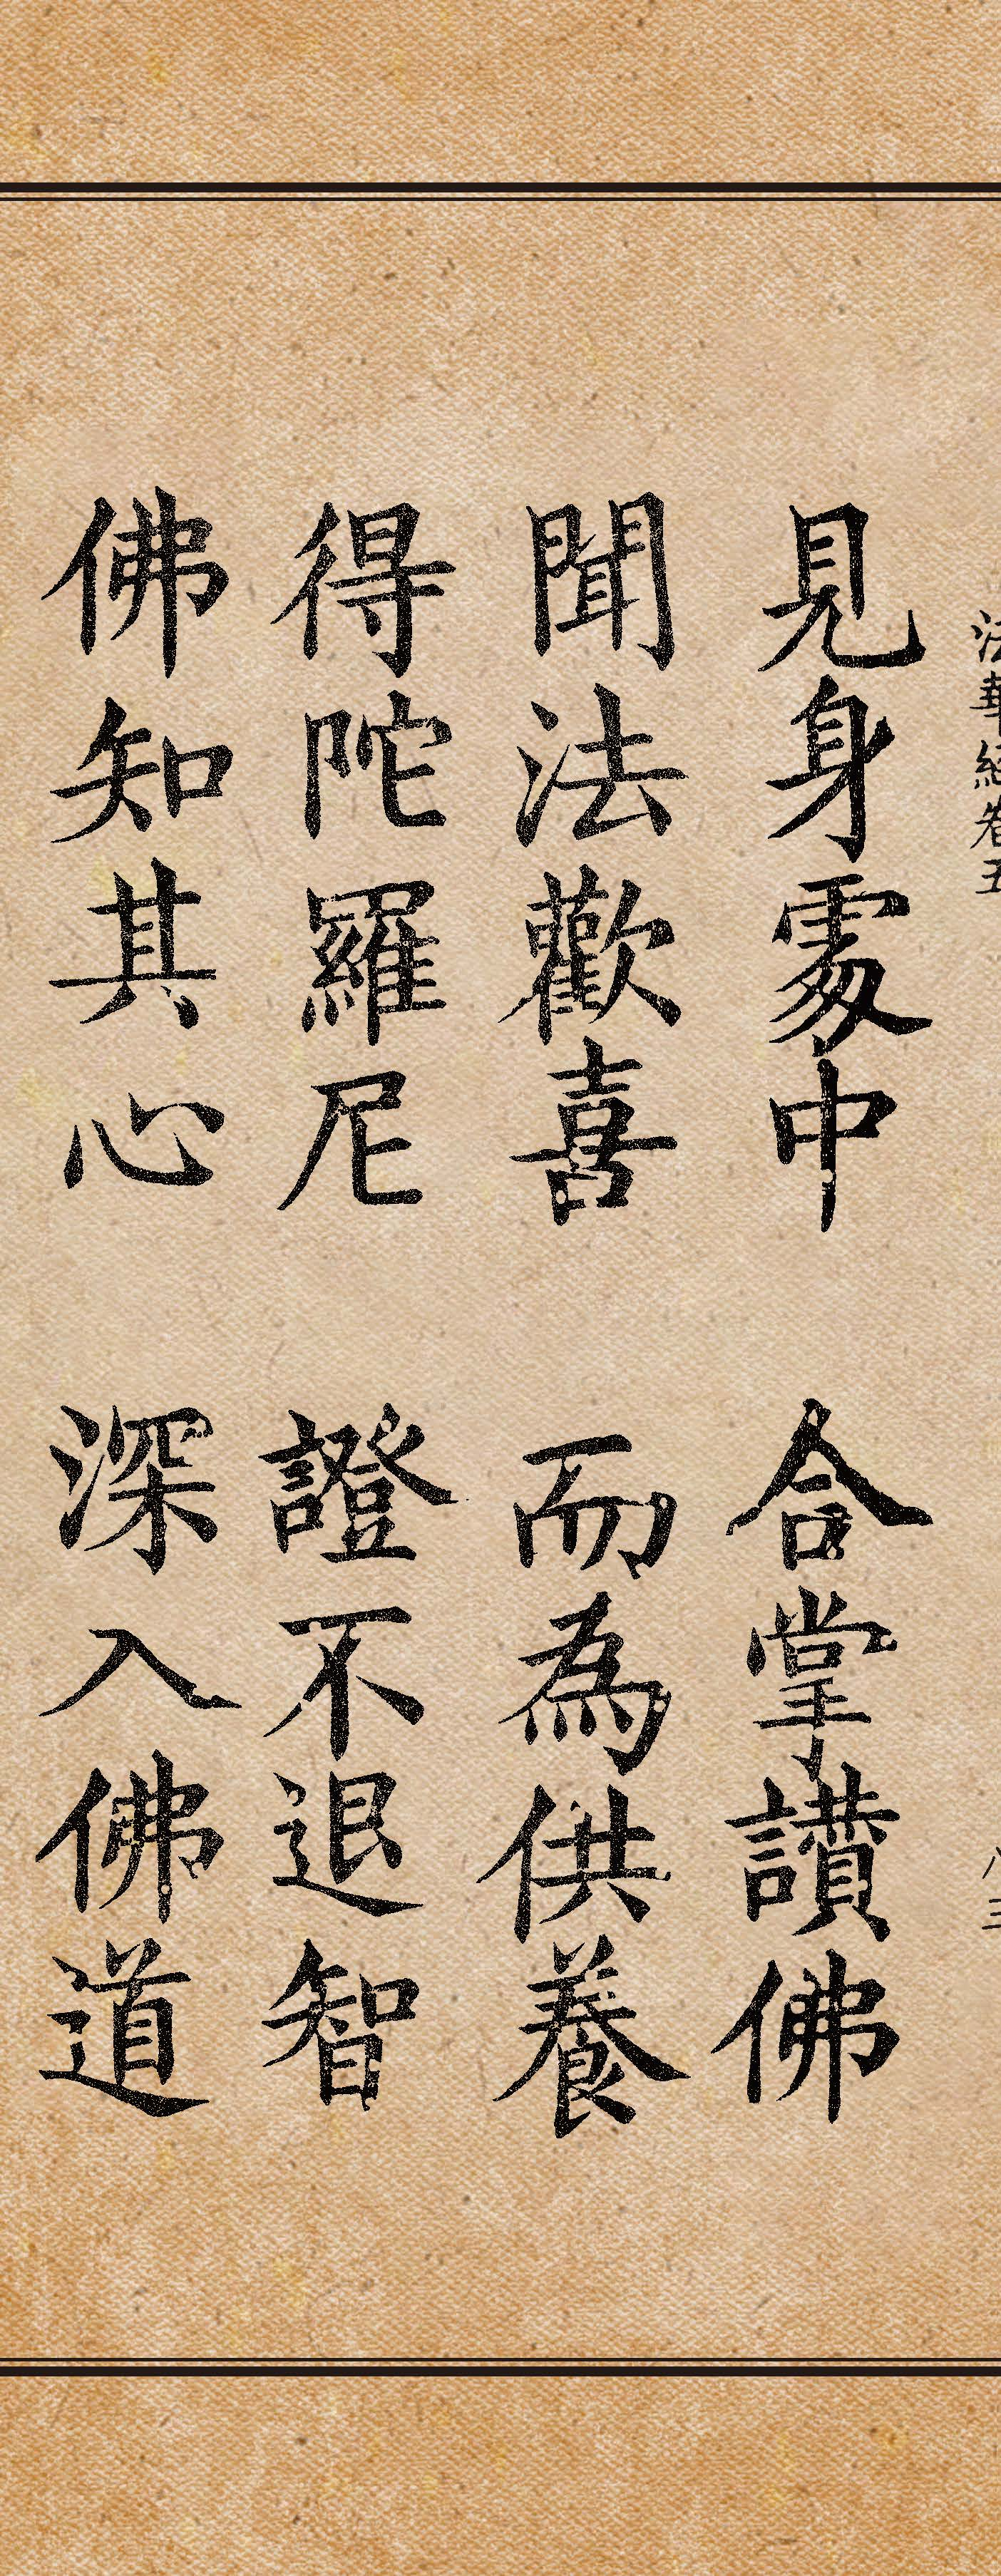 法華經卷五 八三
見身處中 合掌讚佛
聞法歡喜 而為供養
得陀羅尼 證不退智
佛知其心 深入佛道